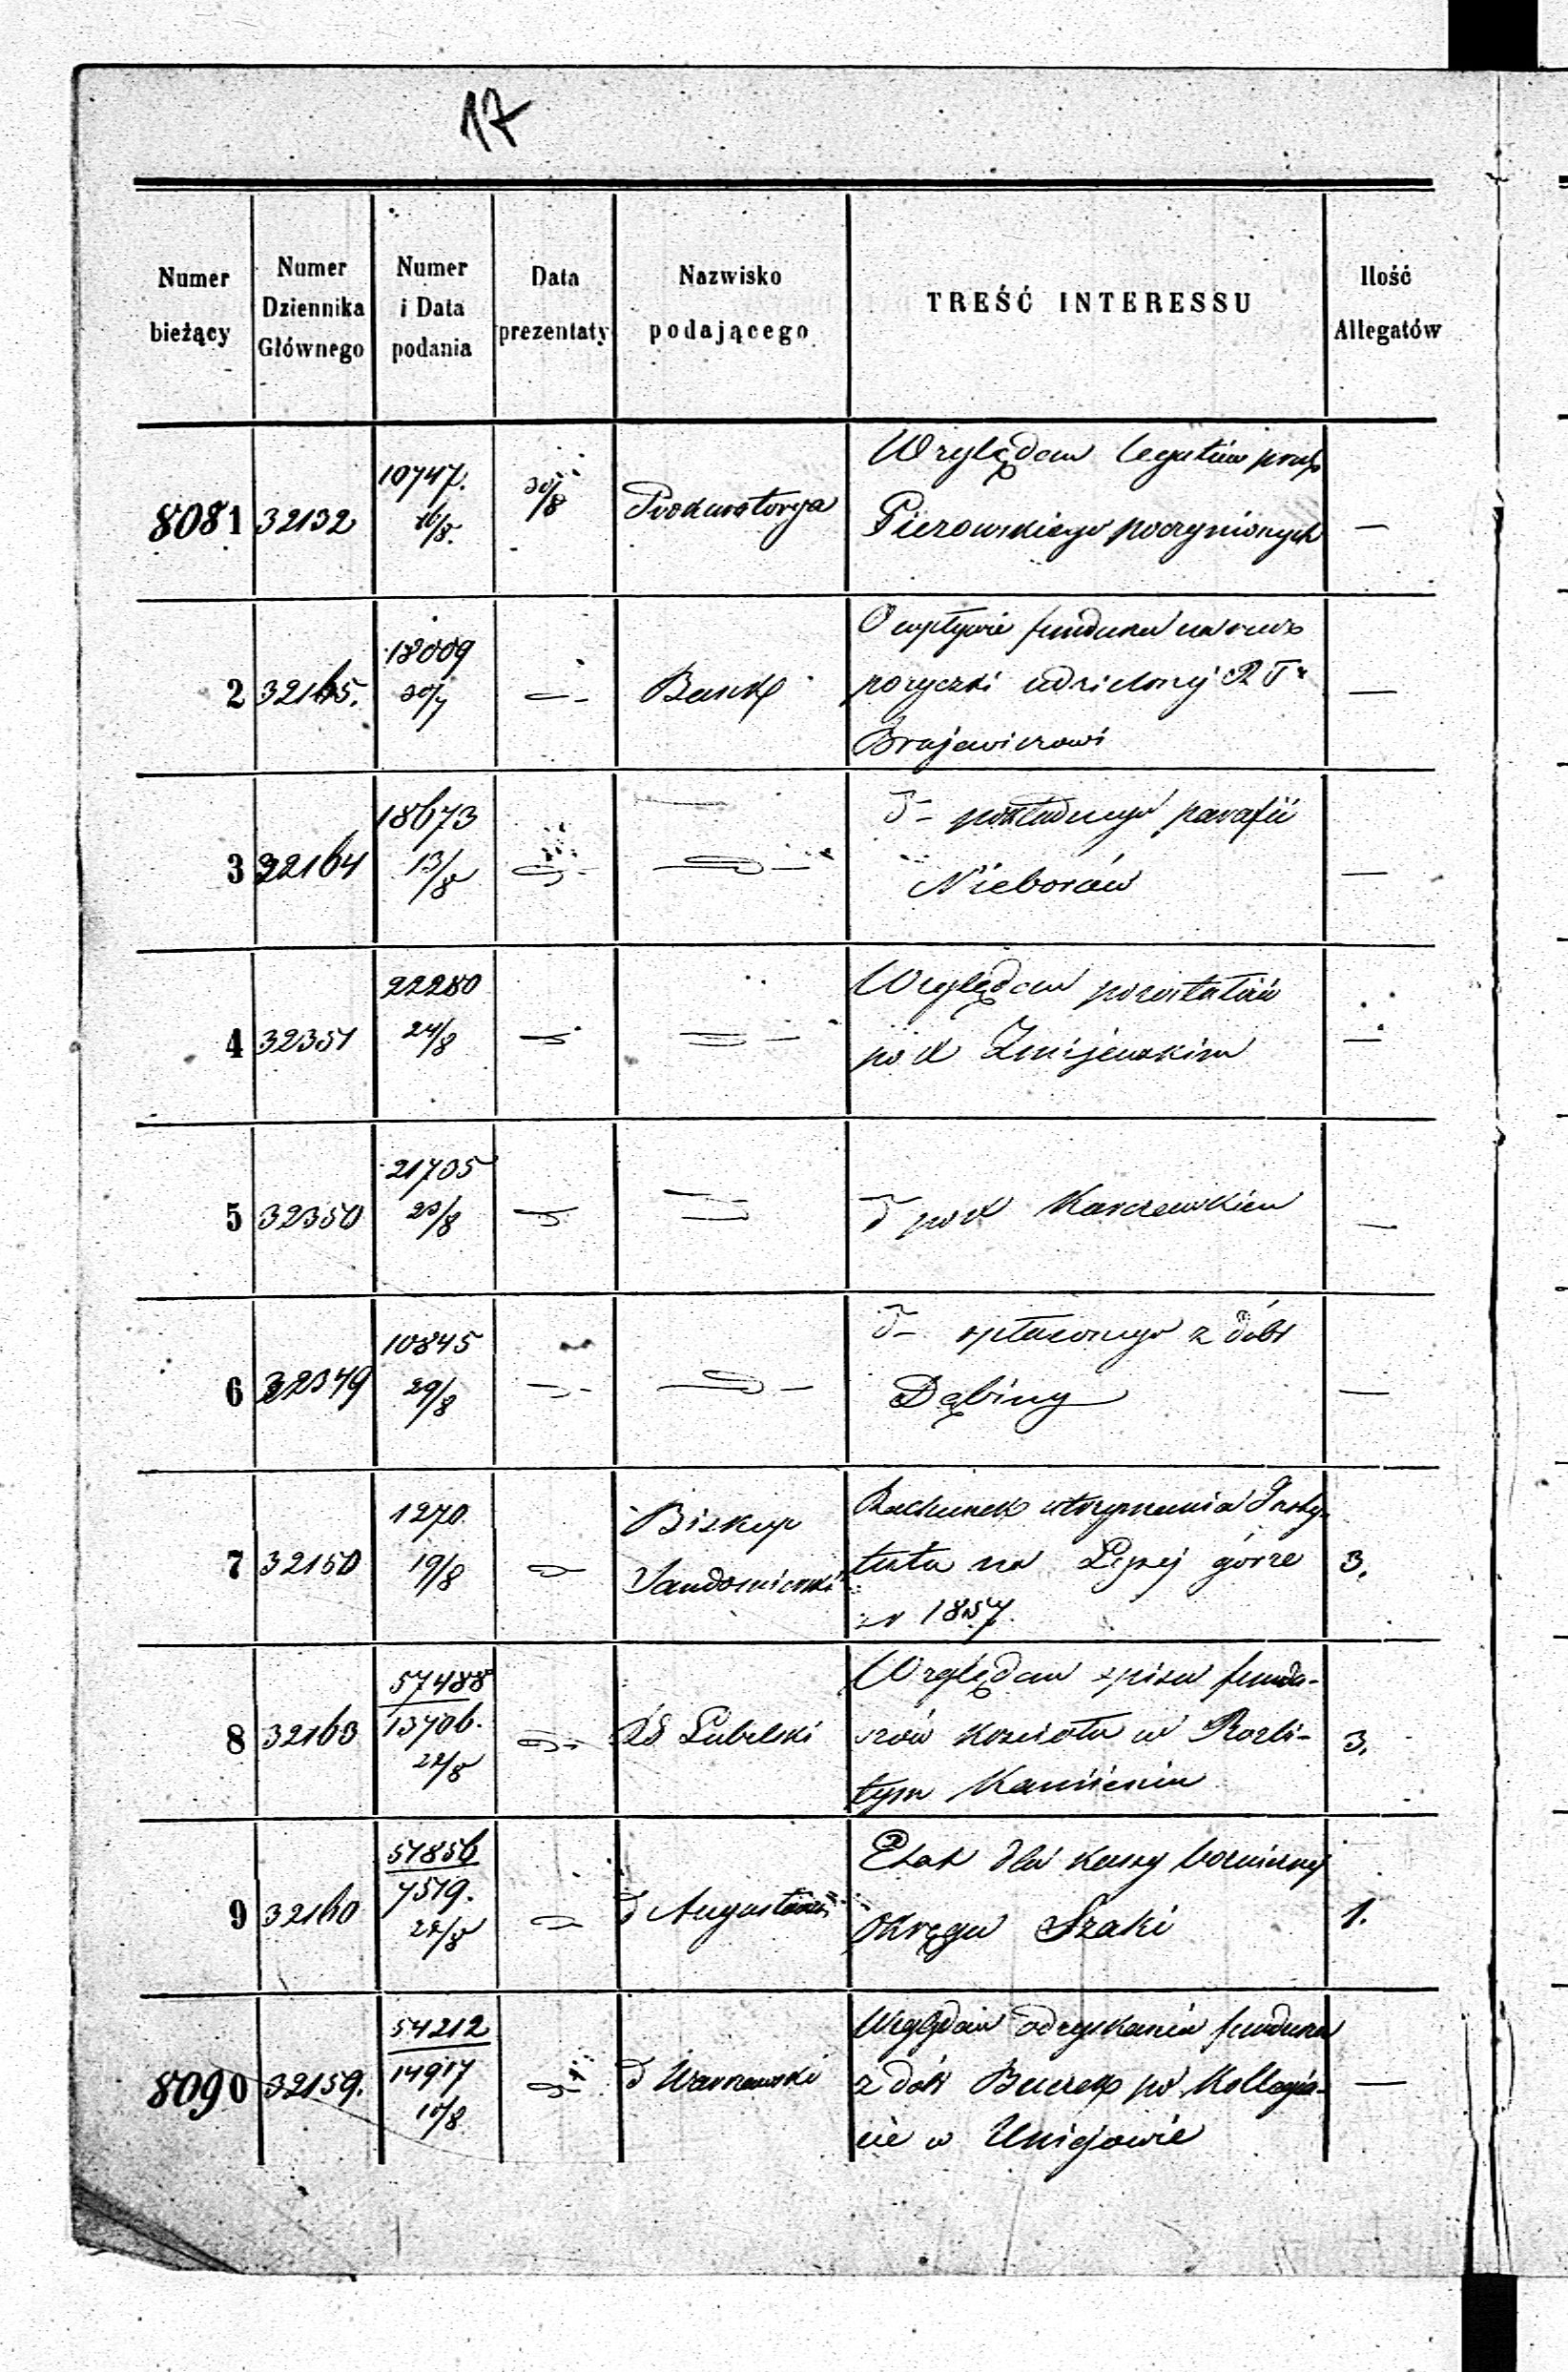 17
Numer bieżący | Numer Dziennika Głównego | Numer i Data podania | Data prezentaty | Nazwisko podającego | TREŚĆ INTERESSU | Ilość Allegatów
8081 | 32132 | 10747. 16/8. | 30/8 | Prokuratorya | Względem legatów przez
Pierowskiego poczynionych | —
2 | 32165. | 18009 30/7 | — | Bank | O wpływie funduszu na rzecz
pożyczki udzielonej
Brajewiczowi | —
3 | 32164 | 18673 13/8 | — | — | d— pokładnego parafii
Nieborów | —
4 | 32351 | 22280 24/8 | — | — | Względem pozostałości
po X Żmijewskim | —
5 | 32350 | 21705 23/8 | — | — | d po X Karczewskim | —
6 | 32349 | 10845 29/8 | — | — | d— spłaconego z dóbr
Dąbiny | —
7 | 32150 | 1270. 19/8 | — | Biskup
Sandomierski | Rachunek utrzymania Insty-
tutu na Łysej górze
z r 1857. | 3.
8 | 32163 | 57488 13706. 22/8 | — | Lubelski | Względem spisu fundu-
szów kościoła w Rozbi-
tym Kamieniu | 3.
9 | 32160 | 57856 7519. 22/8 | — | d Augustowski | Etat dla kassy bożniczej
Okręgu Szaki | 1.
8090 | 32159. | 54212 14917 10/8 | — | d Warszawski | Względem odzyskania funduszu
z dóbr Buczek po Kollegia-
cie w Uniejowie | —